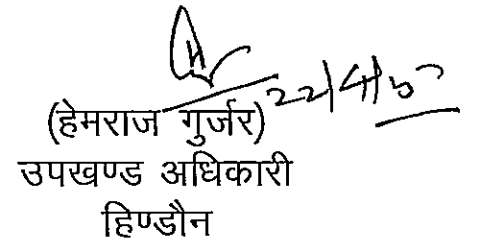 22/4/
(हेमराज गुर्जर)
उपखण्ड अधिकारी
हिण्डौन